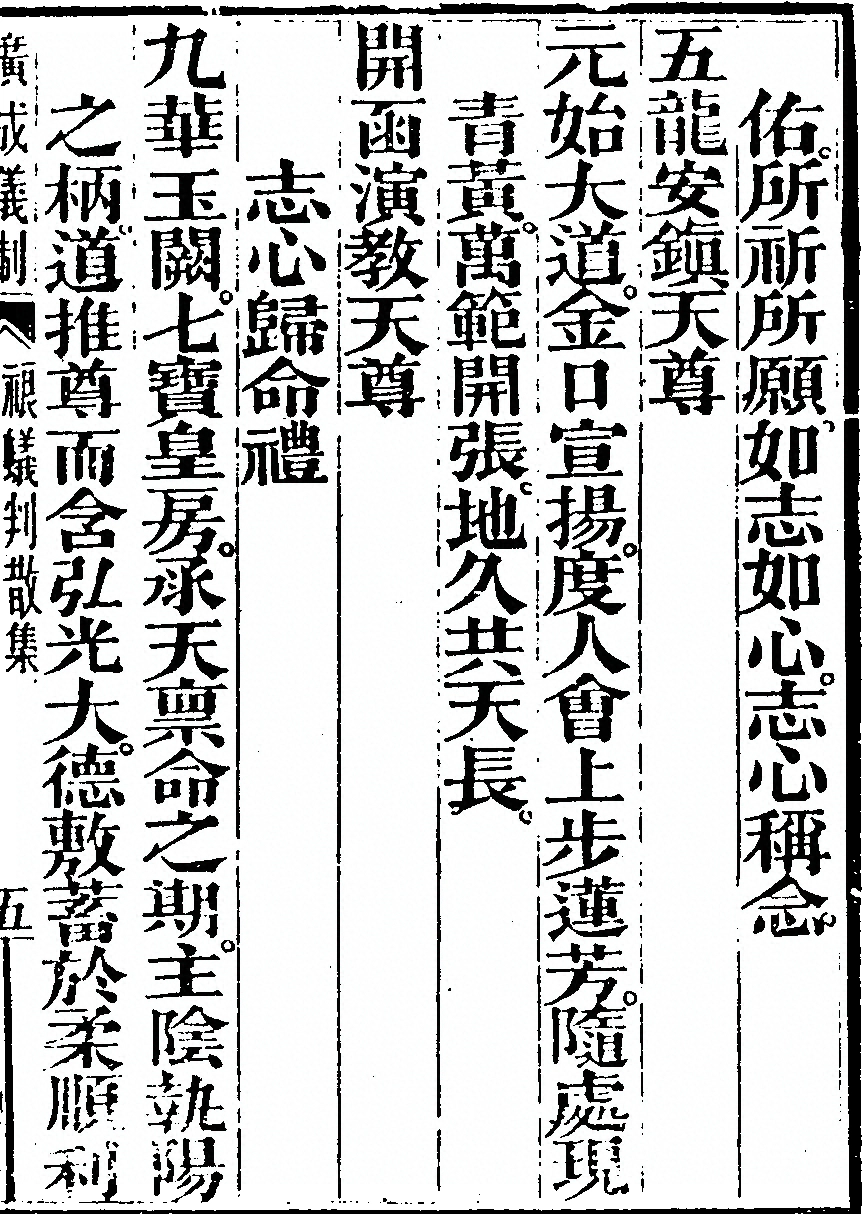 佑。所祈所願。如志如心。志心稱念。
五龍安鎭天尊
元始大道。金口宣揚。度人會上步蓮芳。隨處現
靑黃。萬範開張。地久共天長。
開函演教天尊
志心歸命禮
九華玉闕。七寶皇房。承天稟命之期。主陰執陽
之柄。道推尊而含弘光大。德敷蓄於柔順利
廣成儀制 判散集 五